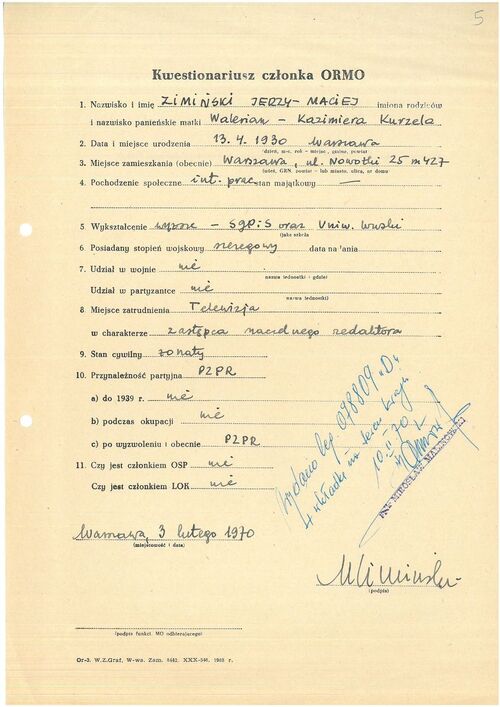 5
Kwestionariusz członka ORMO
1. Nazwisko i imię ZIMIŃSKI JERZY-MACIEJ imiona rodziców
i nazwisko panieńskie matki Walerian - Kazimiera Kurzela
2. Data i miejsce urodzenia 13.4.1930 Warszawa
dzień, m-c, rok - miejsc., gmina, powiat
3. Miejsce zamieszkania (obecnie) Warszawa, ul. Nowotki 25 m 427
(wieś, GRN, powiat - lub miasto, ulica, nr domu
4. Pochodzenie społeczne int. prac. stan majątkowy —
5. Wykształcenie wyższe - SGPiS oraz Uniw. Warsz.
(jaka szkoła
6. Posiadany stopień wojskowy szeregowy data nadania
7. Udział w wojnie nie
nazwa jednostki i gdzie)
Udział w partyzantce nie
nazwa jednostki)
8. Miejsce zatrudnienia Telewizja
w charakterze zastępca naczelnego redaktora
9. Stan cywilny żonaty
10. Przynależność partyjna PZPR
a) do 1939 r. nie
b) podczas okupacji nie
c) po wyzwoleniu i obecnie PZPR
11. Czy jest członkiem OSP nie
Czy jest członkiem LOK nie
Wydano leg. 098809 "D"
10.II.70
MIROSŁAW
Warszawa, 3 lutego 1970
(miejscowość i data)
(podpis)
(podpis funkcj. MO odbierającego)
Or-3. W.Z.Graf. W-wa. Zam. 8442. XXX-546. 1968 r.